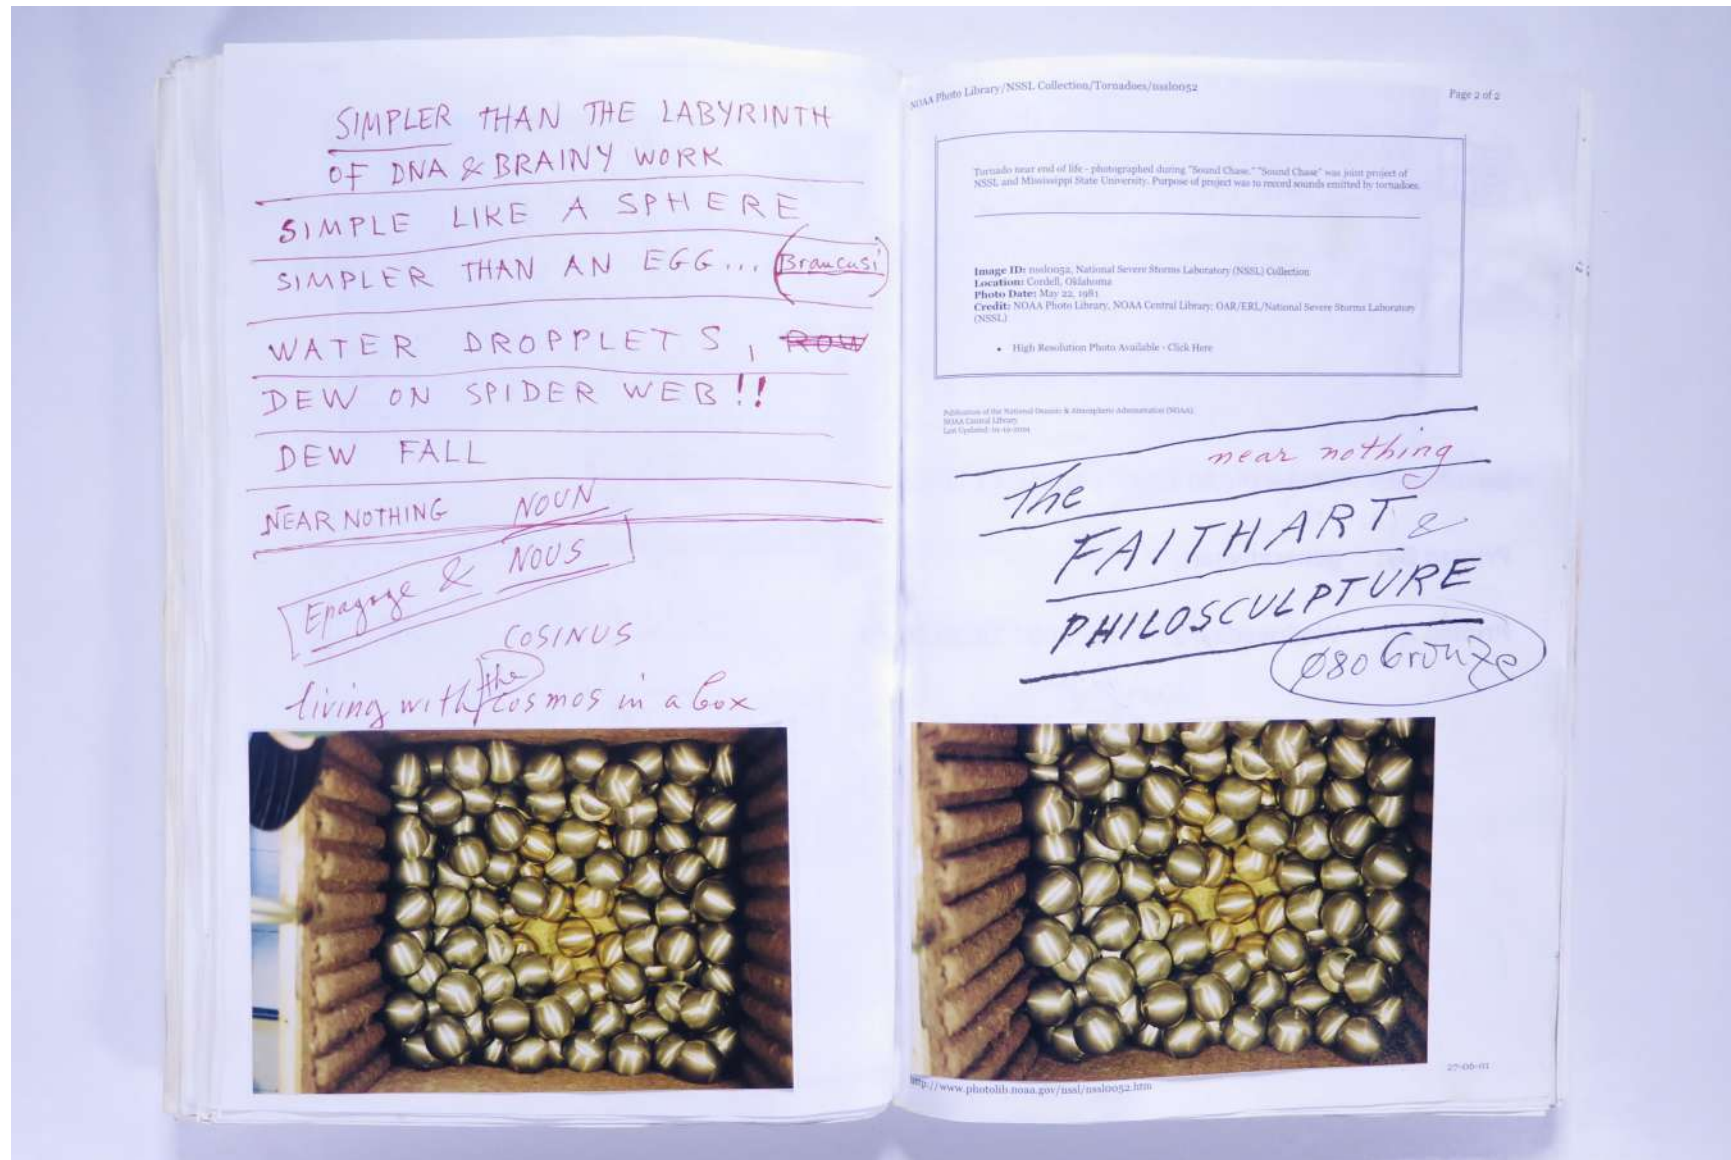 SIMPLER THAN THE LABYRINTH
OF DNA & BRAINY WORK
SIMPLE LIKE A SPHERE
SIMPLER THAN AN EGG... (Brancusi)
WATER DROPPLETS, ROW
DEW ON SPIDER WEB!!
DEW FALL
NEAR NOTHING NOUN
Epagoge & NOUS
COSINUS
living with the cosmos in a box
NOAA Photo Library/NSSL Collection/Tornadoes/nssl0052 Page 2 of 2
Tornado near end of life - photographed during "Sound Chase." "Sound Chase" was joint project of
NSSL and Mississippi State University. Purpose of project was to record sounds emitted by tornadoes.
Image ID: nssl0052, National Severe Storms Laboratory (NSSL) Collection
Location: Cordell, Oklahoma
Photo Date: May 22, 1981
Credit: NOAA Photo Library, NOAA Central Library; OAR/ERL/National Severe Storms Laboratory
(NSSL)
• High Resolution Photo Available - Click Here
Publication of the National Oceanic & Atmospheric Administration (NOAA),
NOAA Central Library
Last Updated:
near nothing
The
FAITHART &
PHILOSCULPTURE
Ø80 bronze
27-06-01
http://www.photolib.noaa.gov/nssl/nssl0052.htm